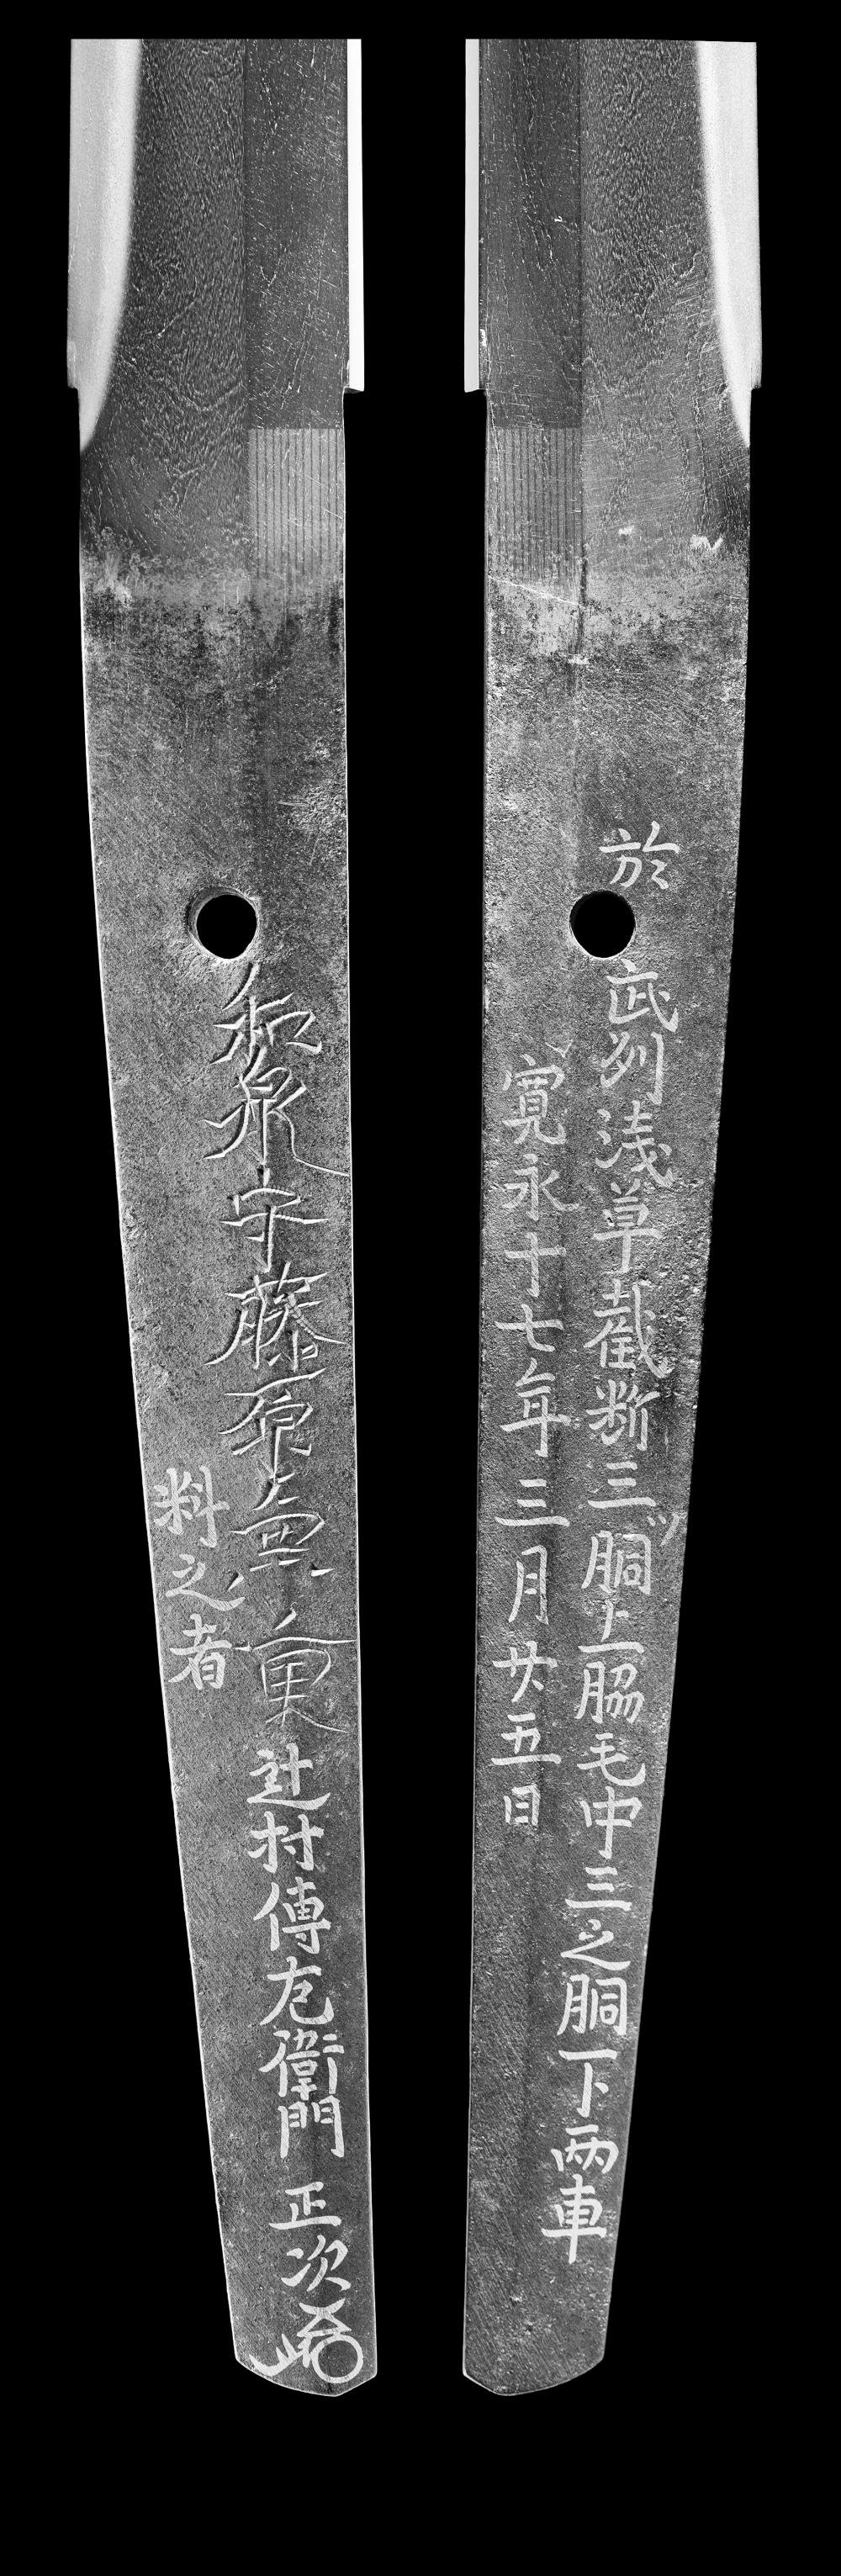 和泉守藤原兼重 辻村傳左衛門 正次
料之者
於武列浅草截断三ツ胴上脇毛中三之胴下両車
寛永十七年三月廿五日